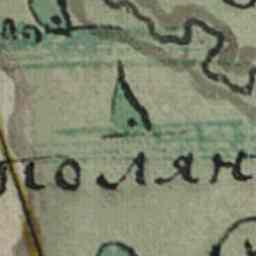 полян